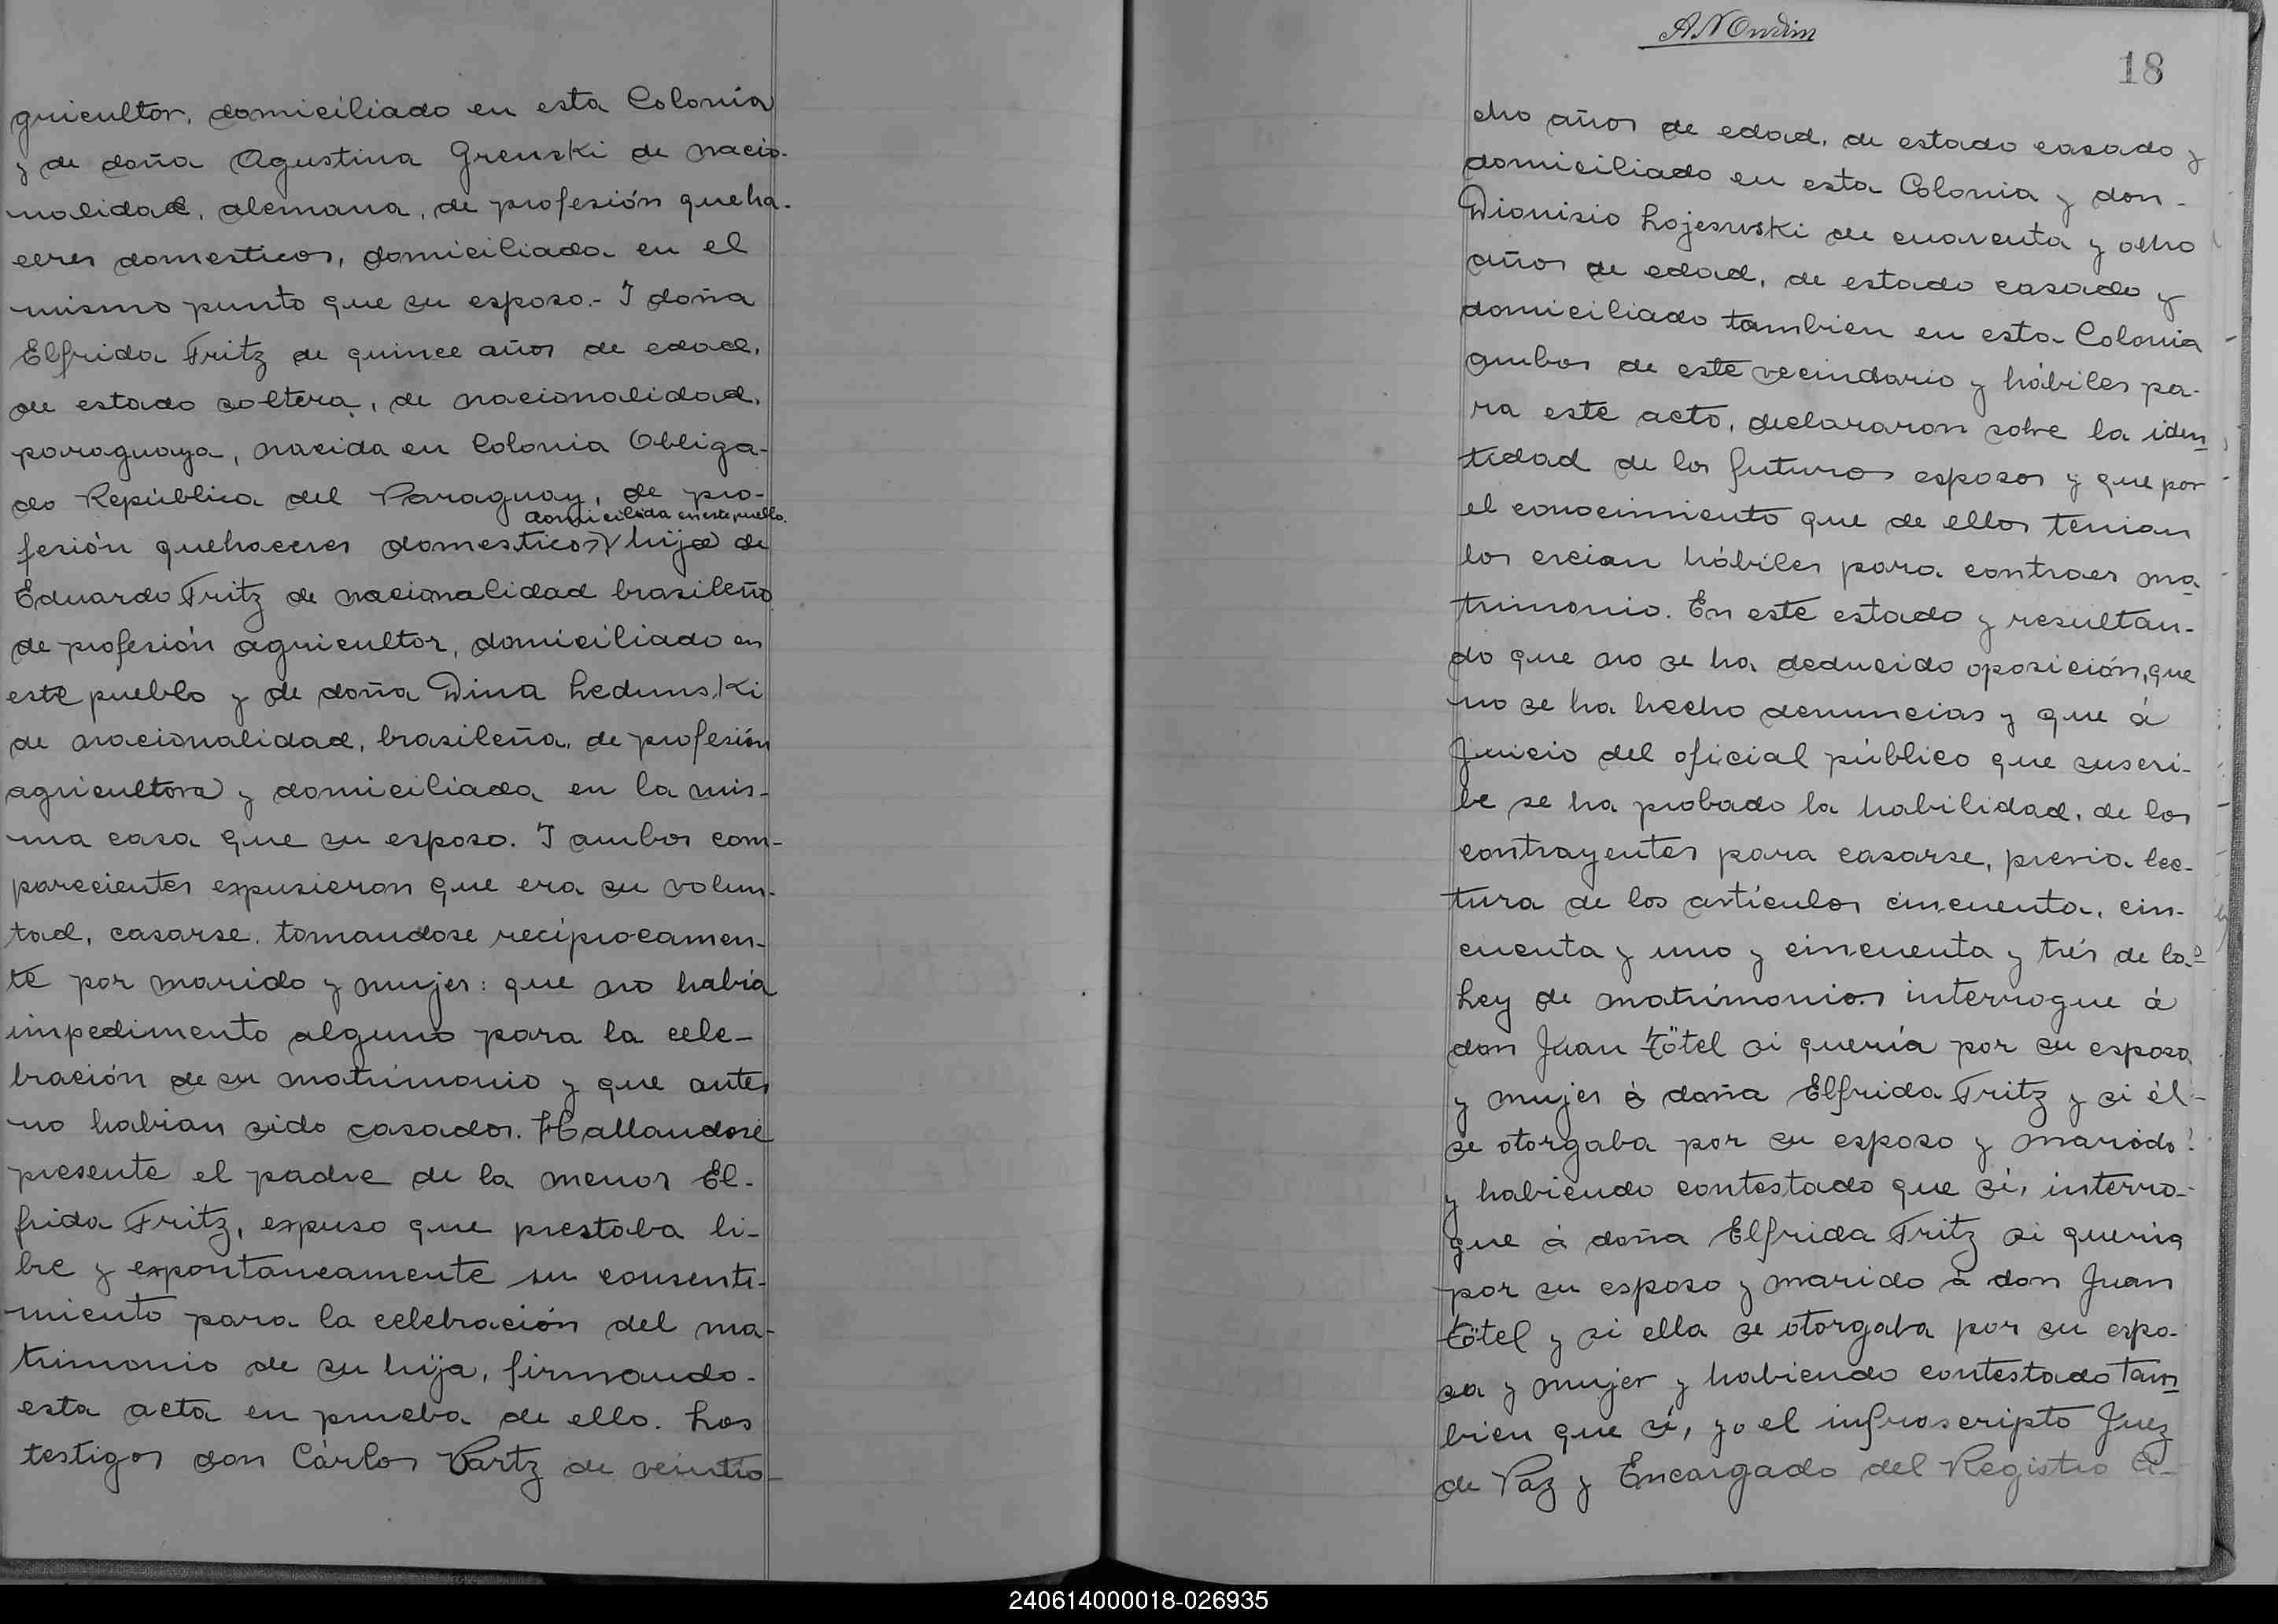 gricultor, domiciliado en esta Colonia
y de doña Agustina Grenski de nacio-
nalidad, alemana, de profesión queha-
ceres domesticos, domiciliada en el
mismo punto que su esposo.- I doña
Elfrida Fritz de quince años de edad,
de estado soltera, de nacionalidad,
paraguaya, nacida en Colonia Obliga-
do República del Paraguay, de pro-
domicilida en este pueblo
fesión quehaceres domesticos, hija de
Eduardo Fritz de nacionalidad brasileño
de profesión agricultor, domiciliado en
este pueblo y de doña Dina Ledunski
de nacionalidad, brasileña, de profesión
agricultora y domiciliada en la mis-
ma casa que su esposo. I ambos com-
parecientes expusieron que era su volun-
tad, casarse, tomandose reciprocamen-
te por marido y mujer: que no había
impedimento alguno para la cele-
bración de su matrimonio y que antes
no habian sido casados. Hallandose
presente el padre de la menor El-
frida Fritz, expuso que prestaba li-
bre y expontaneamente su consenti-
miento para la celebración del ma-
trimonio de su hija, firmando-
esta acta en prueba de ello. Los
testigos don Cárlos Partz de veintio-
18
cho años de edad, de estado casado y
domiciliado en esta Colonia y don-
Dionisio Lojewski de cuarenta y ocho
años de edad, de estado casado y
domiciliado tambien en esta Colonia
ambos de este vecindario y hábiles pa-
ra este acto, declararon sobre la iden
tidad de los futuros esposos y que por
el conocimiento que de ellos tenian
los creian hábiles para contraer ma
trimonio. En este estado y resultan-
do que no se ha deducido oposición, que
no se ha hecho denuncias y que á
juicio del oficial público que suscri-
be se ha probado la habilidad, de los
contrayentes para casarse, previa lec-
tura de los artículos cincuenta, cin-
cuenta y uno y cincuenta y trés de la
Ley de matrimonios interrogue á
don Juan Tötel si quería por su esposa
y mujer á doña Elfrida Fritz y si él-
se otorgaba por su esposo y marido:
y habiendo contestado que sí, interro-
gue á doña Elfrida Fritz si queria
por su esposo y marido á don Juan
tötel y si ella se otorgaba por su espo-
sa y mujer y habiendo contestado tam
bien que sí, yo el infrascripto Juez
de Paz y Encargado del Registro Ci-
240614000018-026935